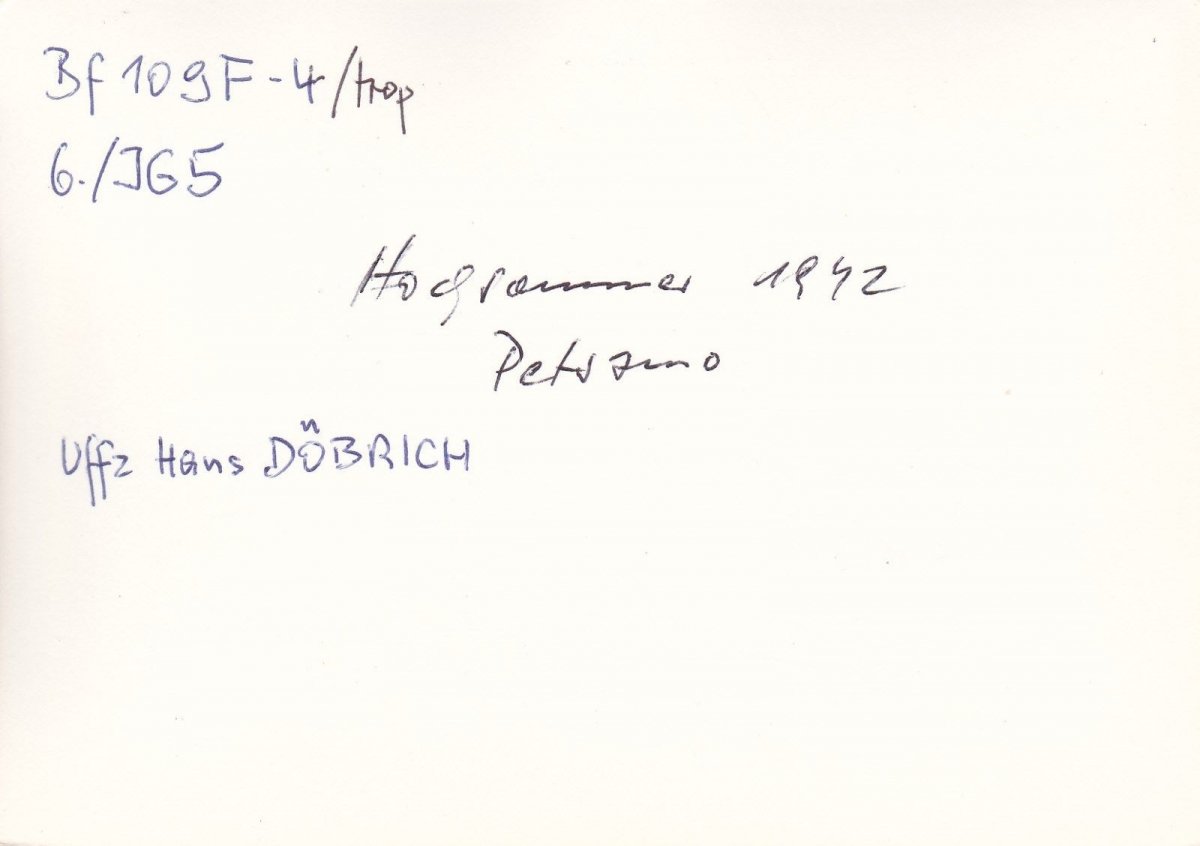 Bf 109F-4/trop
6./JG5
Hochsommer 1942
Petsamo
Uffz Hans DÖBRICH